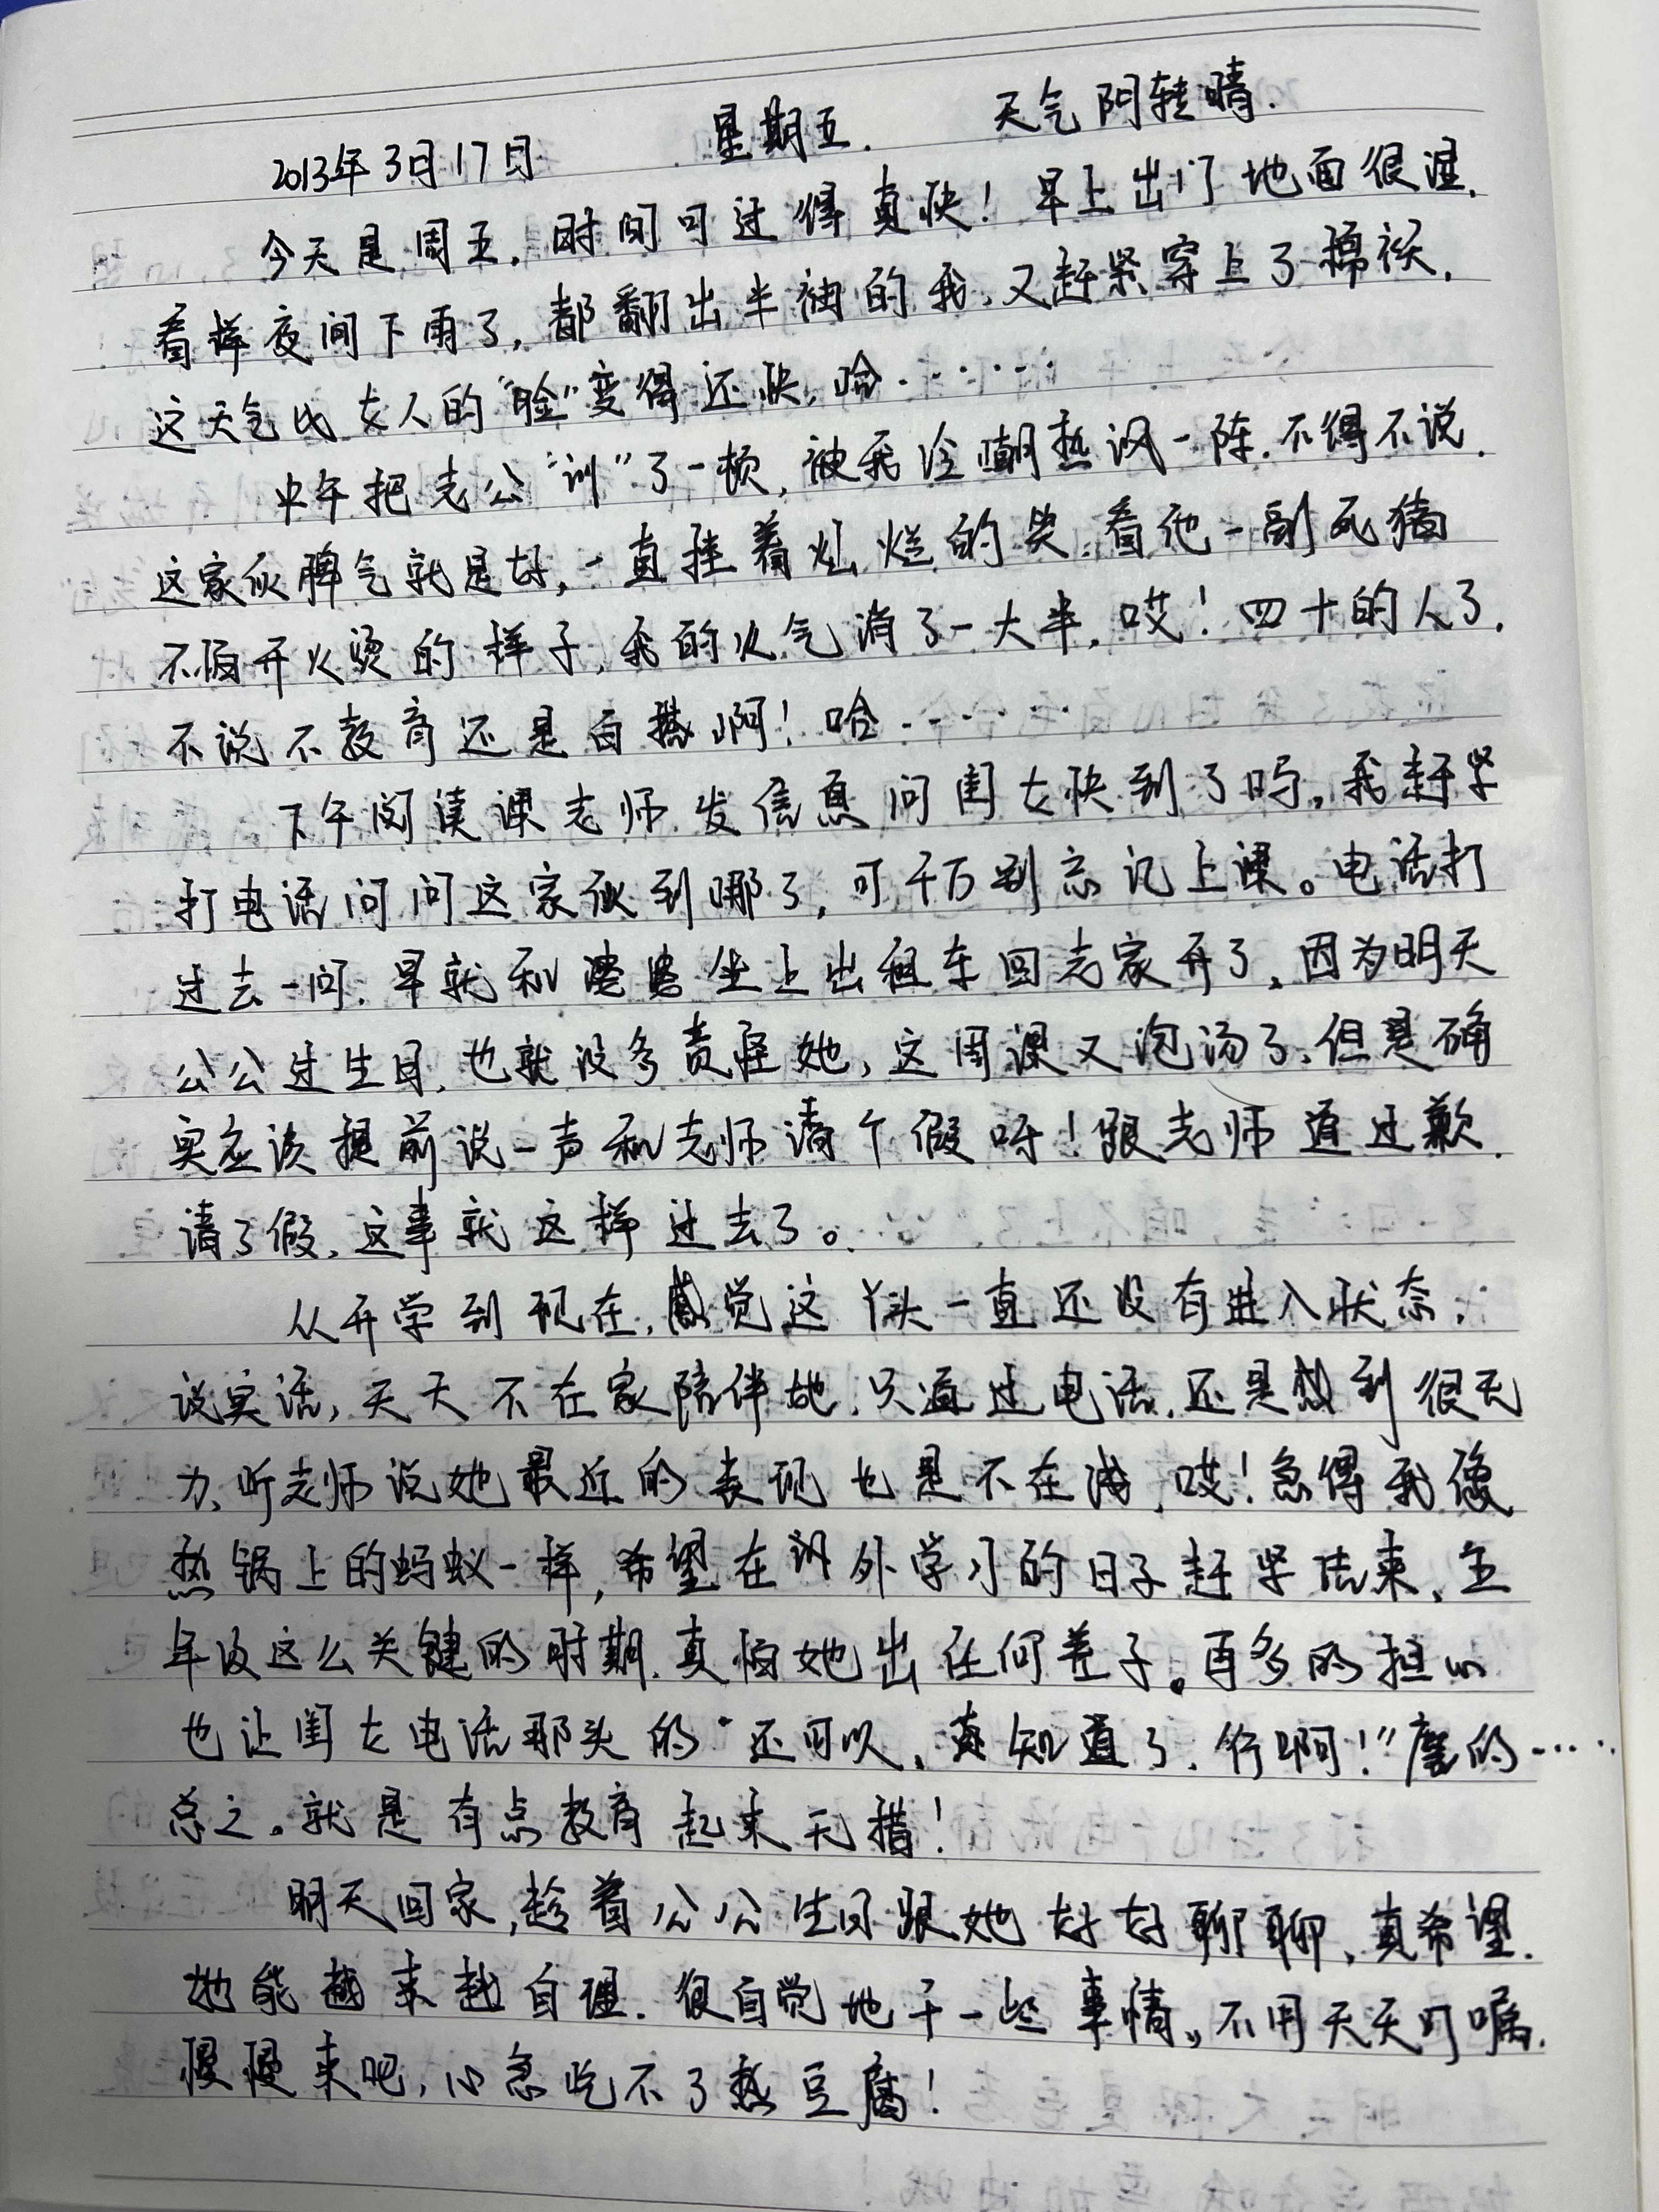 2013年3月17日 星期五. 天气阴转晴.
今天是周五,时间可过得真快！早上出门地面很湿.
看样夜间下雨了,都翻出半袖的我,又赶紧穿上了棉袄,
这天气比女人的“脸”变得还快,哈········
中午把老公“训”了一顿,被我冷嘲热讽一阵.不得不说.
这家伙脾气就是好,一直挂着灿烂的笑.看他一副死猪
不怕开火烫的样子,我的火气消了一大半,哎！四十的人了.
不说不教育还是白搭啊！哈········
下午阅读课老师发信息问闺女快到了吗,我赶紧
打电话问问这家伙到哪了,可千万别忘记上课。电话打
过去一问.早就和婆婆坐上出租车回老家开了,因为明天
公公过生日,也就没多责怪她,这周课又泡汤了.但是确
实应该提前说一声和老师请个假呀！跟老师道过歉.
请了假,这事就这样过去了。
从开学到现在,感觉这丫头一直还没有进入状态,
说实话,天天不在家陪伴她,只通过电话,还是感到很无
力、听老师说她最近的表现也是不在线,哎！急得我像
热锅上的蚂蚁一样,希望在外学习的日子赶紧结束,五
年级这么关键的时期.真怕她出任何差子。再多的担心
也让闺女电话那头的“还可以,知道了,行啊！”磨的·····
总之。就是有点教育起来无措！
明天回家,趁着公公生日跟她好好聊聊,真希望.
她能越来越自理.很自觉地干一些事情,不用天天叮嘱.
慢慢来吧,心急吃不了热豆腐！